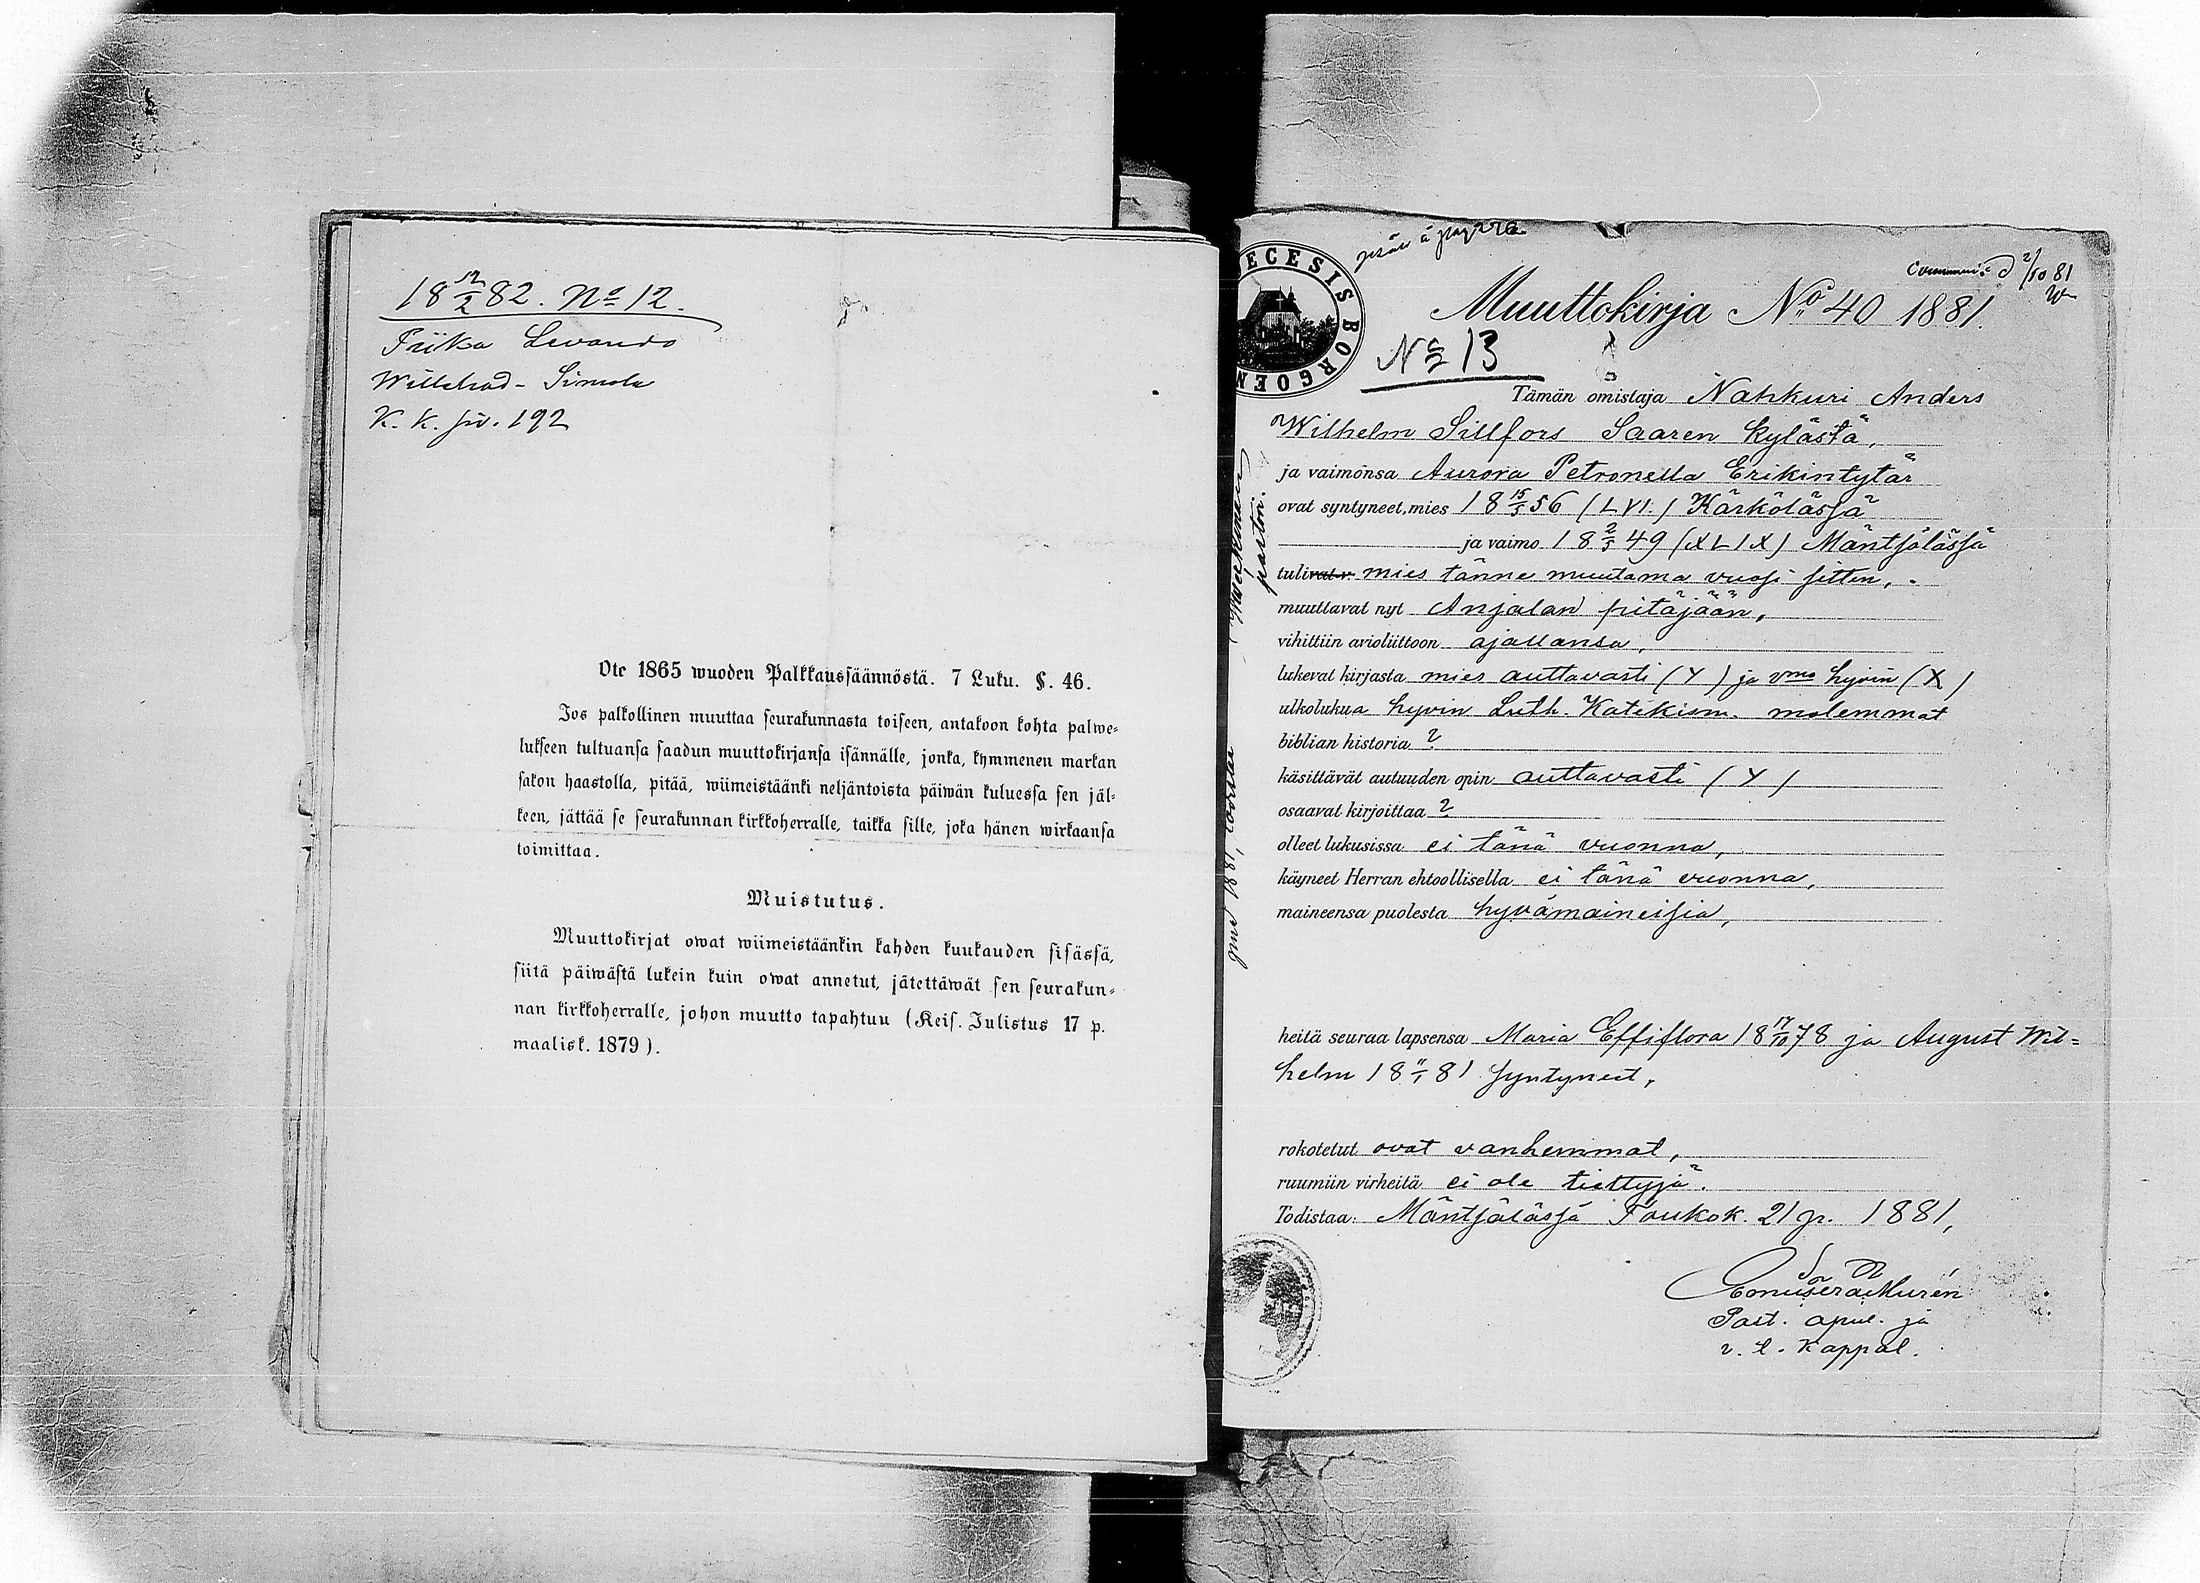 18 12/2 82. No 12.
Piika Levando
Willstrad - Simola
K. K. siv. 192
Ote 1865 wuoden Palkkaussäännöstä. 7 Luku. §. 46.
Jos palkollinen muuttaa seurakunnasta toiseen, antakoon kohta palwe-
lukseen tultuansa saadun muuttokirjansa isännälle, jonka, kymmenen markan
sakon haastolla, pitää, wiimeistäänki neljäntoista päiwän kuluessa sen jäl-
keen, jättää se seurakunnan kirkkoherralle, taikka sille, joka hänen wirkaansa
toimittaa.
Muistutus.
Muuttokirjat owat wiimeistäänkin kahden kuukauden sisässä,
siitä päiwästä lukein kuin owat annetut, jätettäwät sen seurakun-
nan kirkkoherralle, johon muutto tapahtuu (Keis. Julistus 17 p.
maalisk. 1879).
ECESIS BORGOEN
2/10 81
Muuttokirja No 40 1881.
No 13
Tämän omistaja Nahkuri Anders
Wilhelm Sillfors Saaren kylästä,
ja vaimonsa Aurora Petronella Erikintytär
ovat syntyneet, mies 18 15/5 56 (LVI.) Kärkölässä
ja vaimo 18 2/5 49 (XLIX) Mäntsälässä
tulivat mies tänne muutama vuosi sitten,
muuttavat nyt Anjalan pitäjään,
vihittiin avioliittoon ajallansa,
lukevat kirjasta mies auttavasti (Y) ja vmo hyvin (X)
ulkolukua hyvin Luth. Katekism. molemmat
biblian historia ?
käsittävät autuuden opin auttavasti (Y)
osaavat kirjoittaa ?
olleet lukusissa ei tänä vuonna,
käyneet Herran ehtoollisella ei tänä vuonna,
maineensa puolesta hyvämaineisia,
heitä seuraa lapsensa Maria Effiflora 18 17/10 78 ja August Wil-
helm 18 11/1 81 syntyneet,
rokotetut ovat vanhemmat,
ruumiin virheitä ei ole tiettyjä.
Todistaa: Mäntsälässä Toukok. 21 p. 1881,
Past. apul. ja
v. t. Kappal.